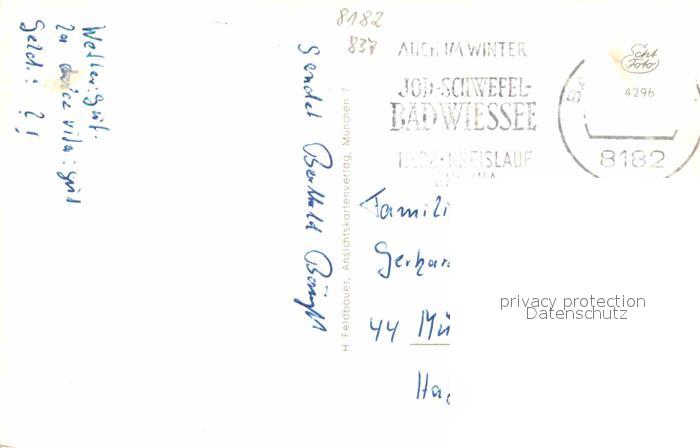 8182
837
AUCH IM WINTER
JOD-SCHWEFEL-
BAD WIESSEE
HERZ·KREISLAUF
8182
Echt
Foto
4296
Wetter: gut.
La dolce vita: gut
Geld: ? !
Sendet Berthold
H. Feldbauer, Ansichtskartenverlag, München 7
Famili
Gerhar
44 Mü
Ha
privacy protection
Datenschutz